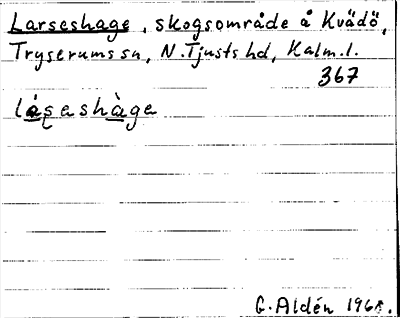 Larseshage, skogsområde å Kvädö,
Tryserums sn, N. Tjusts hd, Kalm. l.
367
G. Aldén